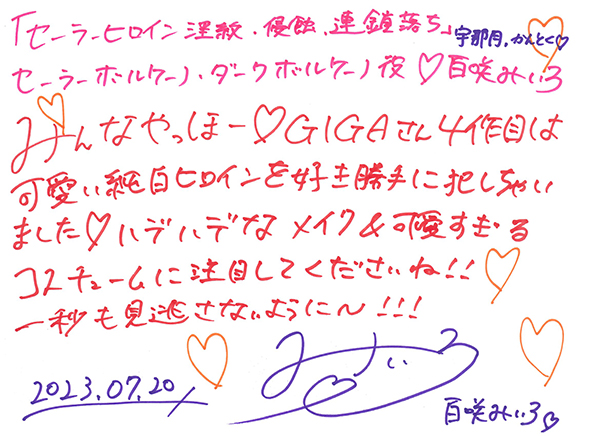 「セーラーヒロイン淫紋・侵蝕、連鎖落ち」宇那月、かんとく♡
セーラーボルケーノ、ダークボルケーノ役♡百咲みいろ
みんなやっほー♡GIGAさん4作目は
可愛い純白ヒロインを好き勝手に犯しちゃい
ました♡ハデハデなメイク&可愛すぎる
コスチュームに注目してくださいね!!
一秒も見逃さないように〜!!!
2023.07.20
みいろ
百咲みいろ♡